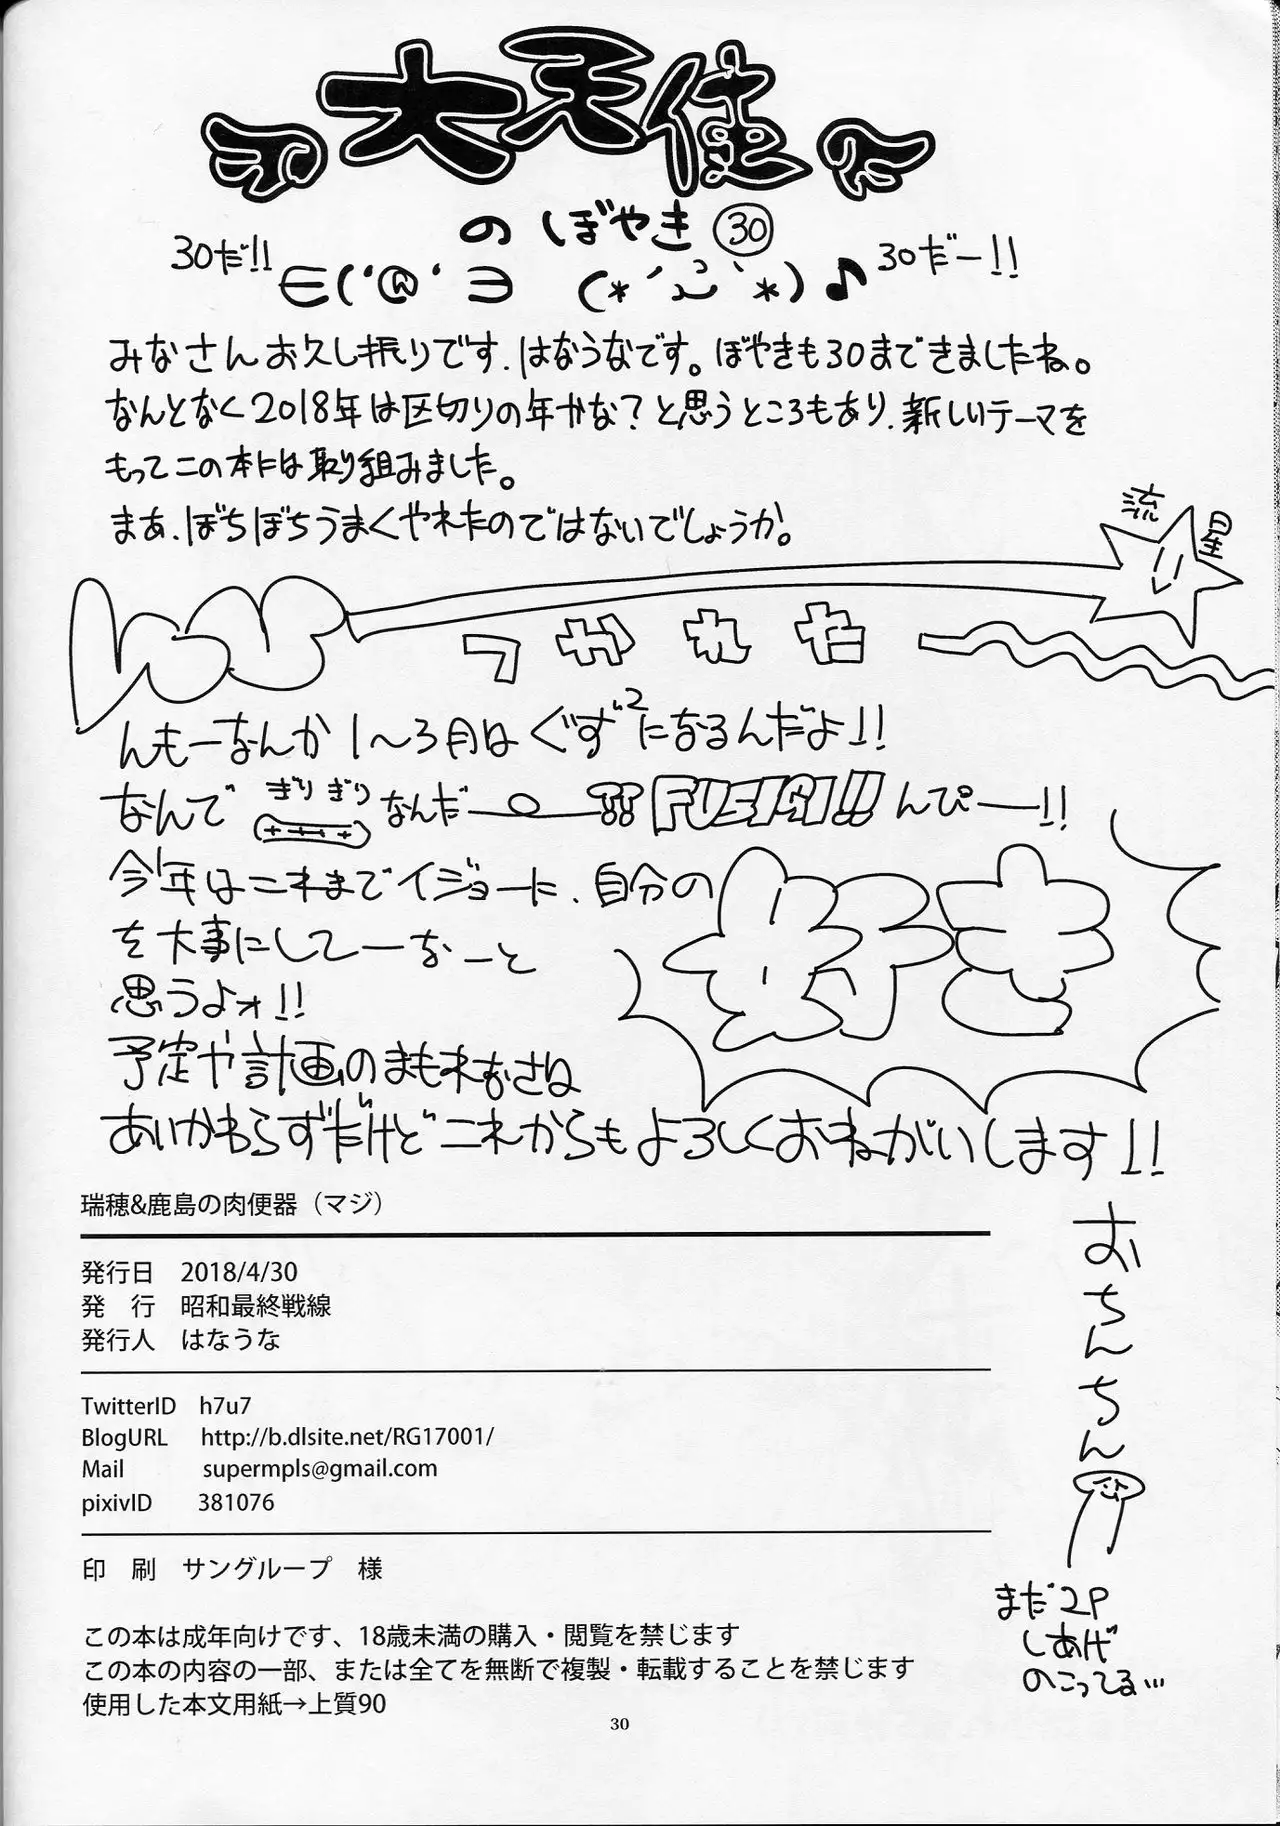 大天使
のぼやき㉚
30だ!! ∈('@' ∋ (*´ `*)♪ 30だー!!
みなさんお久し振りです.はなうなです。ぼやきも30まできましたね。
なんとなく2018年は区切りの年かな?と思うところもあり.新しいテーマを
もってこの本には取り組みました。
まあ.ぼちぼちうまくやれたのではないでしょうか。
流星
つかれた
んもーなんか1〜3月はぐず²になるんだよ!!
なんでぎりぎりなんだー⁇ FUSIGI!! んぴー!!
今年はこれまでイジョーに.自分の好き
を大事にしてーなーと
思うよォ!!
予定や計画のまもれなさは
あいかわらずだけどこれからもよろしくおねがいします!!
瑞穂&鹿島の肉便器(マジ)
発行日 2018/4/30
発 行 昭和最終戦線
発行人 はなうな
TwitterID h7u7
BlogURL http://b.dlsite.net/RG17001/
Mail supermpls@gmail.com
pixivID 381076
印 刷 サングループ 様
この本は成年向けです、18歳未満の購入・閲覧を禁じます
この本の内容の一部、または全てを無断で複製・転載することを禁じます
使用した本文用紙→上質90
おちんちん
まだ2P
しあげ
のこってる…
30